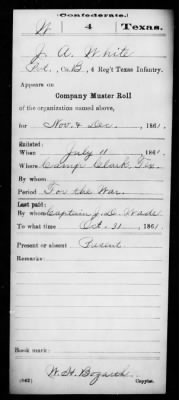 Confederate.
W. 4 Texas.
J. A. White
Pvt., Co. B, 4 Reg't Texas Infantry.
Appears on
Company Muster Roll
of the organization named above,
for Nov. & Dec., 1861.
Enlisted:
When July 11, 1861.
Where Camp Clark, Tex.
By whom
Period For the War.
Last paid:
By whom Captain J. D. Wade
To what time Oct. 31, 1861.
Present or absent Present
Remarks:
Book mark:
W. H. Bogarth
(642) Copyist.